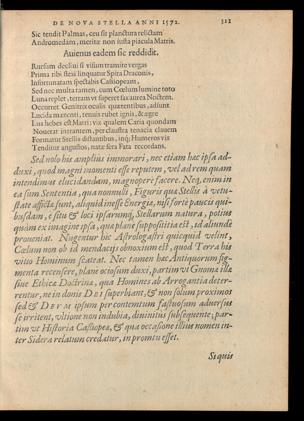 DE NOVA STELLA ANNI 1572. 322
Sic tendit Palmas, ceu sit planctura relictum
Andromedam, meritæ non iusta piacula Matris.
Auienus eadem sic reddidit.
Rursum decliui si visum tramite vergas
Prima tibi flexi linquatur Spira Draconis,
Infortunatam spectabis Cassiopeam,
Sed nec multa tamen, cum Cœlum lumine toto
Luna replet, terram vt superet fax aurea Noctem.
Occurret Genitrix oculis quærentibus, adsunt
Lucida marenti, tenuis rubet ignis, &
Lux hebes est Matri: vix qualem Caria quondam
Nouerat intrantem, per claustra tenacia clauem
Formatur Stellis distantibus, inq; Humeros vix
Tenditur angustos, natæ sera Fata recordans.
Sed nolo his amplius immorari, nec etiam hæc ipsa ad-
duxi, quod magni momenti esse reputem, vel ad rem quam
intendimus elucidandam, magnopere facere. Neq; enim in
ea sum Sententia, qua nonnulli, Figuris quæ Stellis à vetu-
state afficta sunt, aliquid inesse Energiæ, nisi forte paucis qui-
busdam, è situ & loci ipsarumq; Stellarum natura, potius
quàm ex imagine ipsa, quæ plane supposititia est, id aliunde
proueniat. Nugentur hic Astrologastri quicquid velint,
Cœlum non ob id mendacijs obnoxium est, quod Terra his
vitio Hominum scateat. Nec tamen hæc Antiquorum fig-
menta recensere, plane otiosum duxi, partim vt Gnoma illa
siue Ethica Doctrina, qua Homines ab Arrogantia deter-
rentur, ne in donis DEI superbiant, & non solum proximos
sed & DEVM ipsum per contemtum fastuosum aduersus
se irritent, vltione non indubia, diuinitus subsequente; par-
tim vt Historia Cassiopeæ, & qua occasione illius nomen in-
ter Sidera relatum credatur, in promtu esset.
Si quis